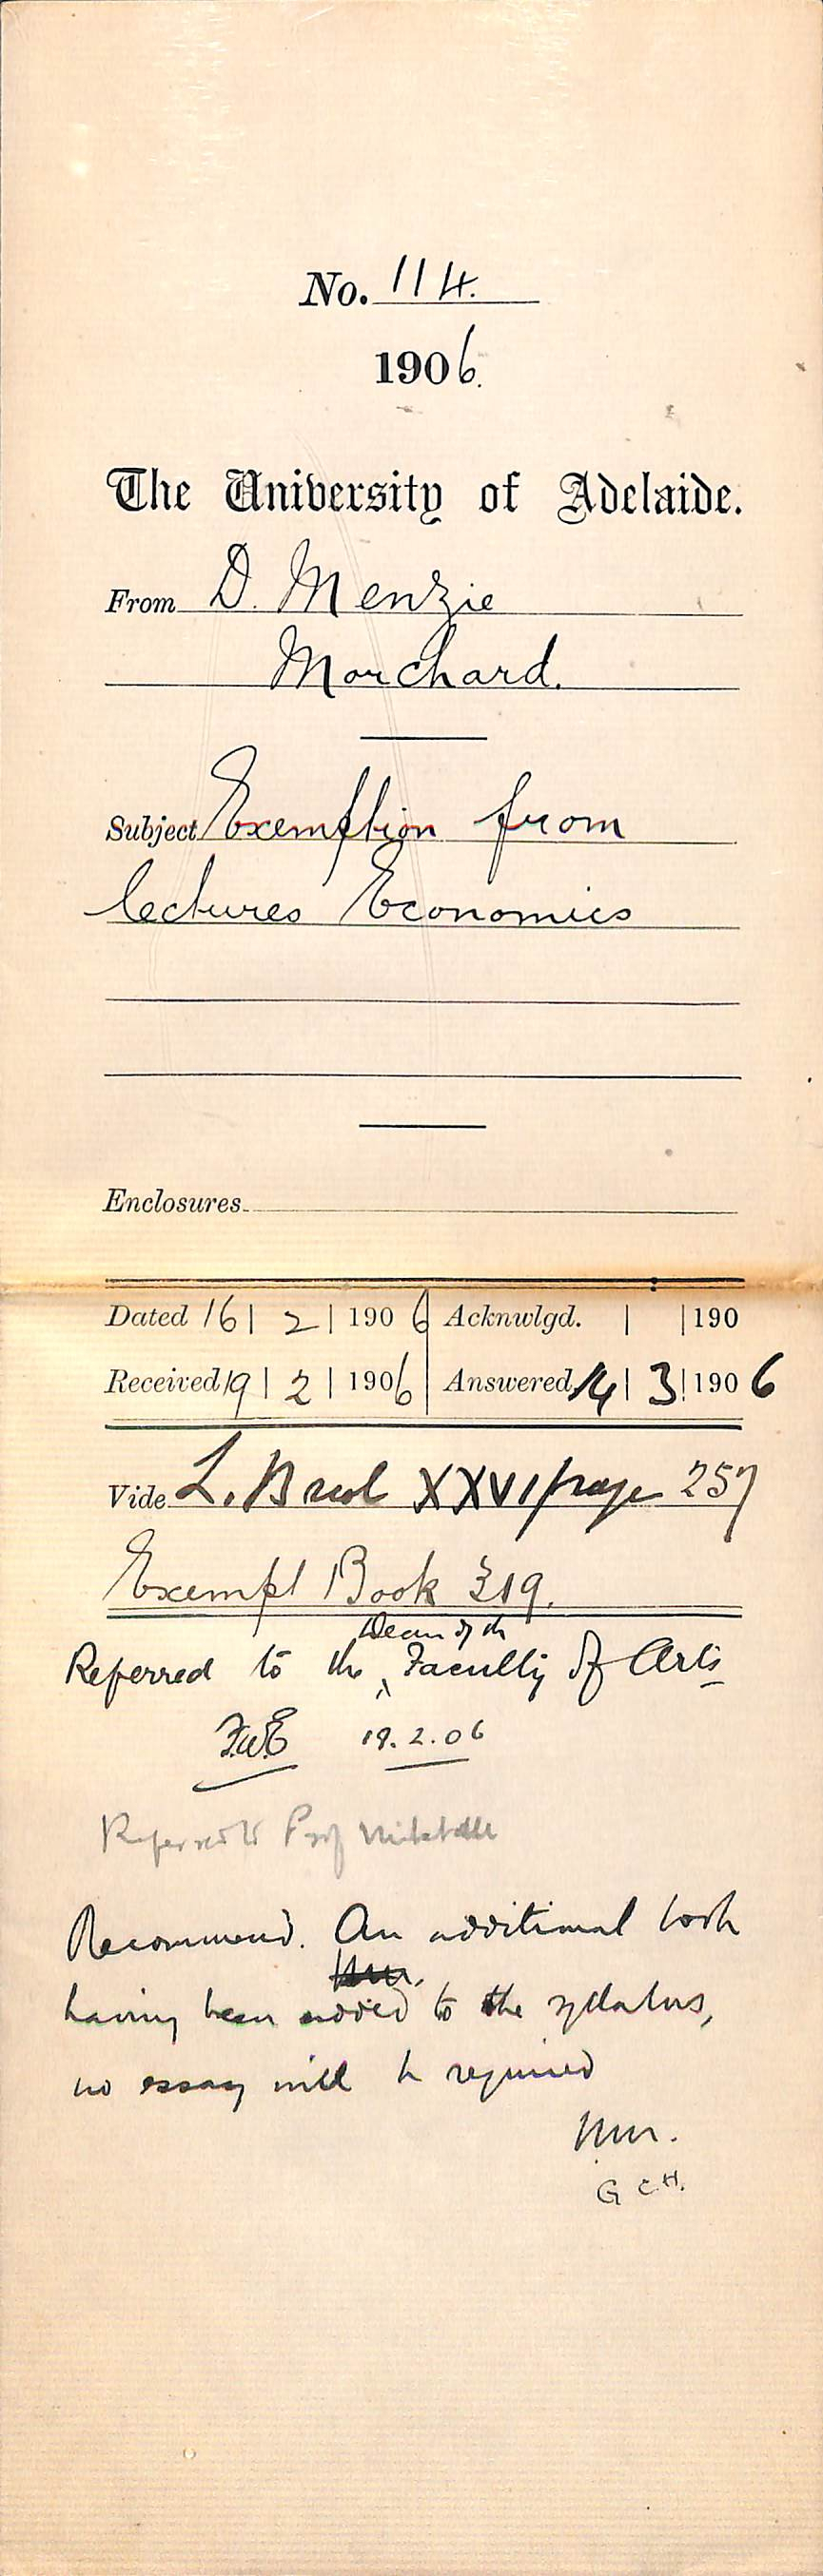 No. 114.
1906.
The University of Adelaide.
From D. Menzie
Morchard.
Subject Exemption from
lectures Economics
Enclosures
Dated 16 | 2 | 1906 Acknwlgd. | | 190
Received 19 | 2 | 1906 Answered 14 | 3 | 1906
Vide L. Book XXVI page 257
Exempt Book 319.
Dean of the
Referred to the Faculty of Arts
F.W.E 19.2.06
Referred to Prof Mitchell
Recommend. An additional book
having been added to the syllabus,
no essay will be required
WM.
G C H.